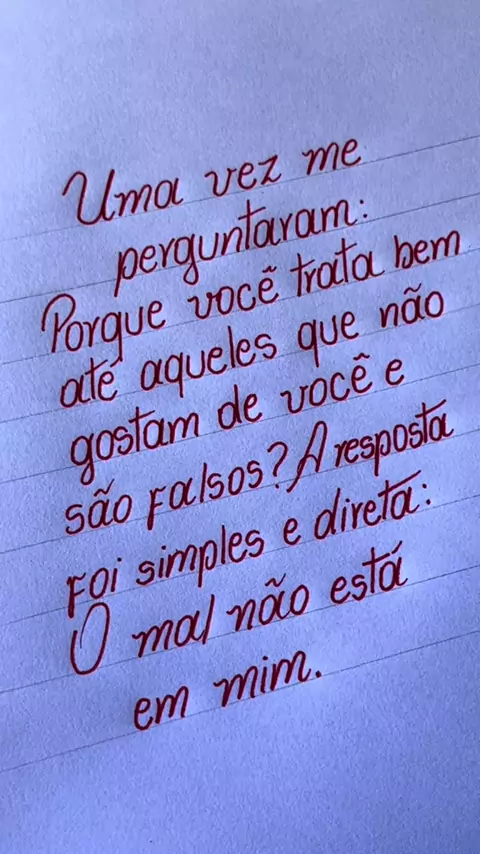 Uma vez me
perguntaram:
Porque você trata bem
até aqueles que não
gostam de você e
são falsos? A resposta
foi simples e direta:
O mal não está
em mim.